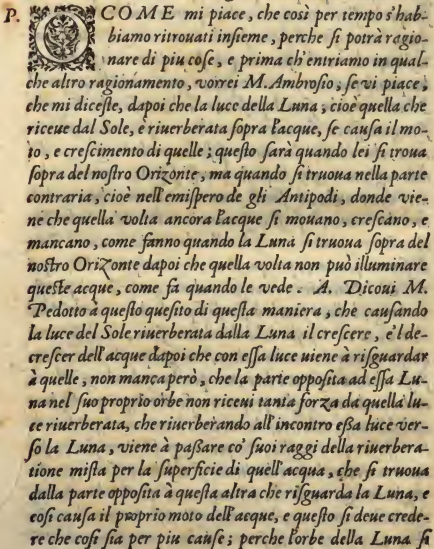 P. O COME mi piace, che così per tempo s'hab-
biamo ritrouati insieme, perche si potrà ragio-
nare di piu cose, e prima ch'entriamo in qual-
che altro ragionamento, vorrei M. Ambrosio, se vi piace,
che mi diceste, dapoi che la luce della Luna, cioè quella che
riceue dal Sole, e riuerberata sopra l'acque, se causa il mo-
to, e crescimento di quelle; questo sarà quando lei si troua
sopra del nostro Orizonte, ma quando si truoua nella parte
contraria, cioè nell'emispero de gli Antipodi, donde vie-
ne che quella volta ancora l'acque si mouano, crescano, e
mancano, come fanno quando la Luna si truoua sopra del
nostro Orizonte dapoi che quella volta non può illuminare
queste acque, come fa quando le vede. A. Dicoui M.
Pedotto à questo quesito di questa maniera, che causando
la luce del Sole riuerberata dalla Luna il crescere, e'l de-
crescer dell'acque dapoi che con essa luce uiene à risguardar
à quelle, non manca però, che la parte opposita ad essa Lu-
na nel suo proprio orbe non riceui tanta forza da quella lu-
ce riuerberata, che riuerberando all'incontro essa luce ver-
so la Luna, viene à passare co' suoi raggi della riuerbera-
tione mista per la superficie di quell'acqua, che si truoua
dalla parte opposita à questa altra che risguarda la Luna, e
cosi causa il proprio moto dell'acque, e questo si deue crede-
re che cosi sia per piu cause; perche l'orbe della Luna si